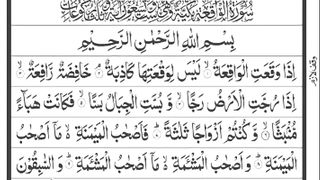 سُوْرَةُ الْوَاقِعَةِ مَكِّيَّةٌ وَّهِيَ سِتٌّ وَّتِسْعُوْنَ اٰيَةً وَّثَلٰثُ رُكُوْعَاتٍ
بِسْمِ اللهِ الرَّحْمٰنِ الرَّحِيْمِ
اِذَا وَقَعَتِ الْوَاقِعَةُ ۙ لَيْسَ لِوَقْعَتِهَا كَاذِبَةٌ ۘ خَافِضَةٌ رَّافِعَةٌ ۙ
اِذَا رُجَّتِ الْاَرْضُ رَجًّا ۙ وَّبُسَّتِ الْجِبَالُ بَسًّا ۙ فَكَانَتْ هَبَآءً
مُّنْۢبَثًّا ۙ وَّكُنْتُمْ اَزْوَاجًا ثَلٰثَةً ؕ فَاَصْحٰبُ الْمَيْمَنَةِ ۙ مَاۤ اَصْحٰبُ
الْمَيْمَنَةِ ؕ وَاَصْحٰبُ الْمَشْـَٔمَةِ ۙ مَاۤ اَصْحٰبُ الْمَشْـَٔمَةِ ؕ وَالسّٰبِقُوْنَ
وقف لازم